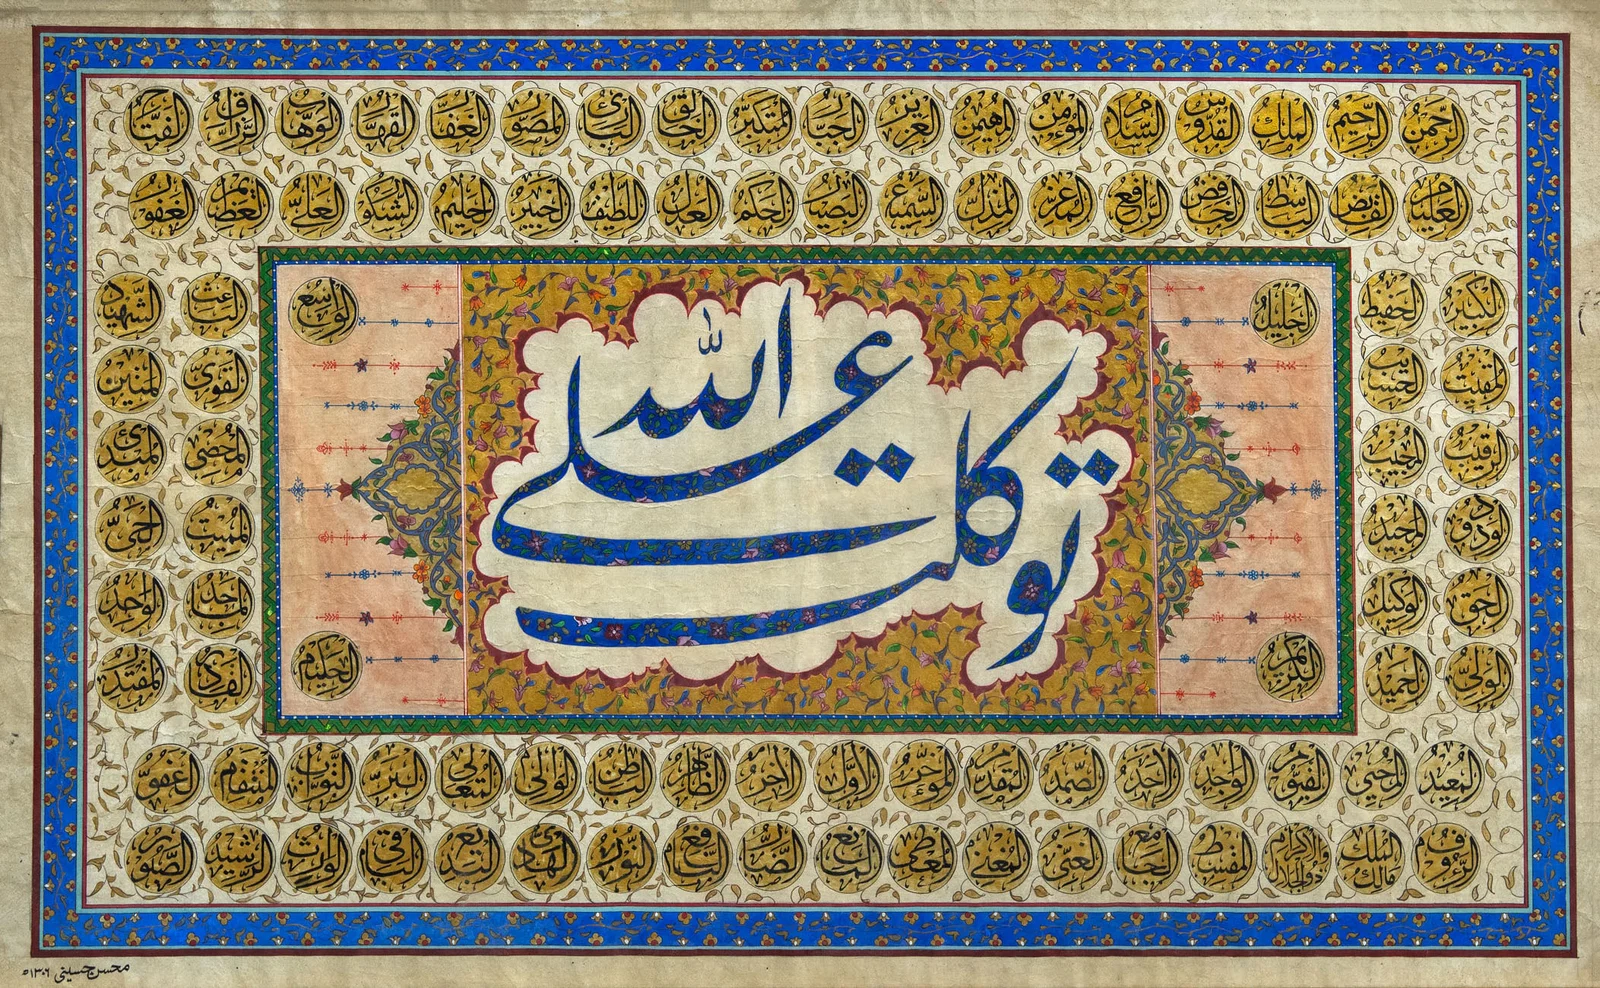 الرحمن الرحيم الملك القدوس السلام المؤمن المهيمن العزيز الجبار المتكبر الخالق البارئ المصور الغفار القهار الوهاب الرزاق الفتاح
العليم القابض الباسط الخافض الرافع المعز المذل السميع البصير الحكم العدل اللطيف الخبير الحليم الشكور العلي العظيم الغفور
الكبير الحفيظ الجليل الواسع الباعث الشهيد
المقيت الحسيب القوي المتين
الرقيب المجيب المحصي المبدئ
توكلت على الله
الودود المجيد المميت الحي
الحق الوكيل الماجد الواجد
الولي الحميد الكريم القادر المقتدر
المعيد المحيي القيوم الواحد الاحد الصمد المقدم المؤخر الاول الاخر الظاهر الباطن الوالي المتعالي البر التواب المنتقم العفو
الرؤوف مالك الملك ذو الجلال والاكرام المقسط الجامع الغني المغني المعطي المانع الضار النافع النور الهادي البديع الباقي الوارث الرشيد الصبور
محسن حسینی ۱۳۰۶